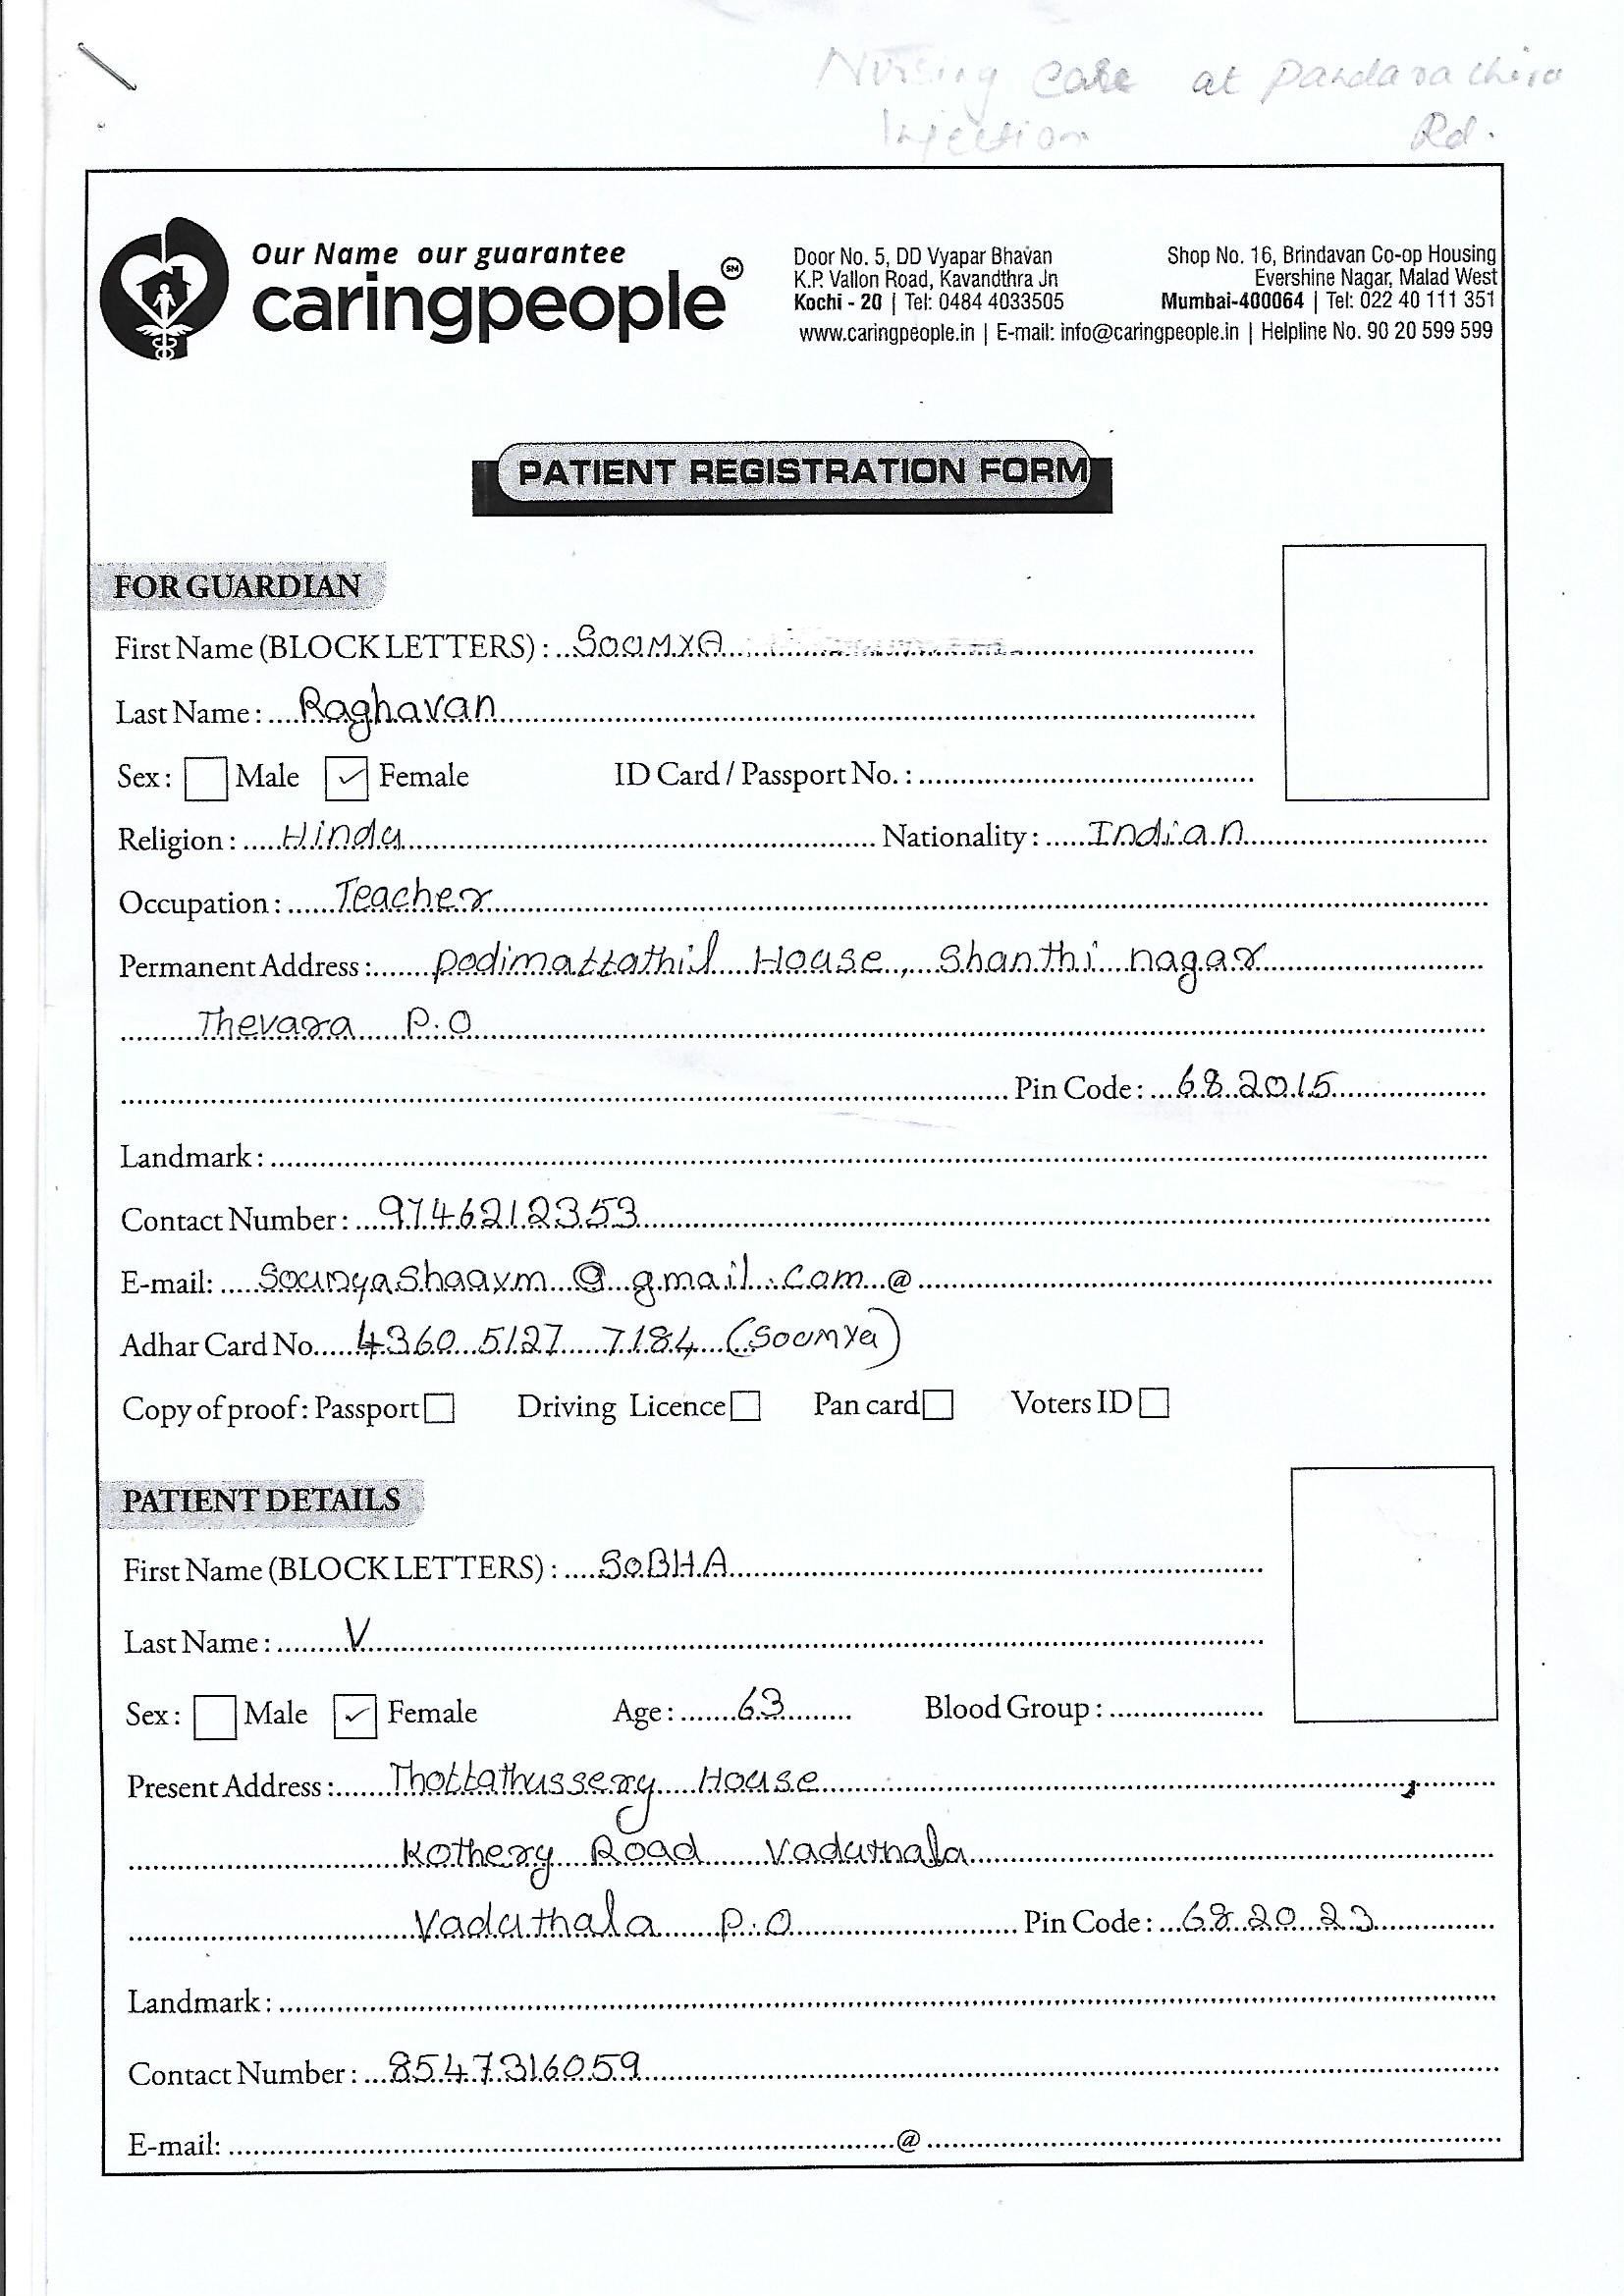 Nursing care at Pandarachira
Injection Rd.
Our Name our guarantee
caringpeople SM
Door No. 5, DD Vyapar Bhavan
K.P. Vallon Road, Kavandthra Jn
Kochi - 20 | Tel: 0484 4033505
Shop No. 16, Brindavan Co-op Housing
Evershine Nagar, Malad West
Mumbai-400064 | Tel: 022 40 111 351
www.caringpeople.in | E-mail: info@caringpeople.in | Helpline No. 90 20 599 599
PATIENT REGISTRATION FORM
FOR GUARDIAN
First Name (BLOCK LETTERS) : SOUMYA
Last Name : Raghavan
Sex : Male ✓ Female ID Card / Passport No. :
Religion : Hindu Nationality : Indian
Occupation : Teacher
Permanent Address : Podimattathil House, Shanthi nagar
Thevara P.O
Pin Code : 682015
Landmark :
Contact Number : 9746212353
E-mail: @gmail.com @
Adhar Card No. 4360 5127 7184 (Soumya)
Copy of proof : Passport Driving Licence Pan card Voters ID
PATIENT DETAILS
First Name (BLOCK LETTERS) : SOBHA
Last Name : V
Sex : Male ✓ Female Age : 63 Blood Group :
Present Address : Thottathussery House
Kothery Road Vaduthala
Vaduthala P.O Pin Code : 682023
Landmark :
Contact Number : 8547316059
E-mail: @